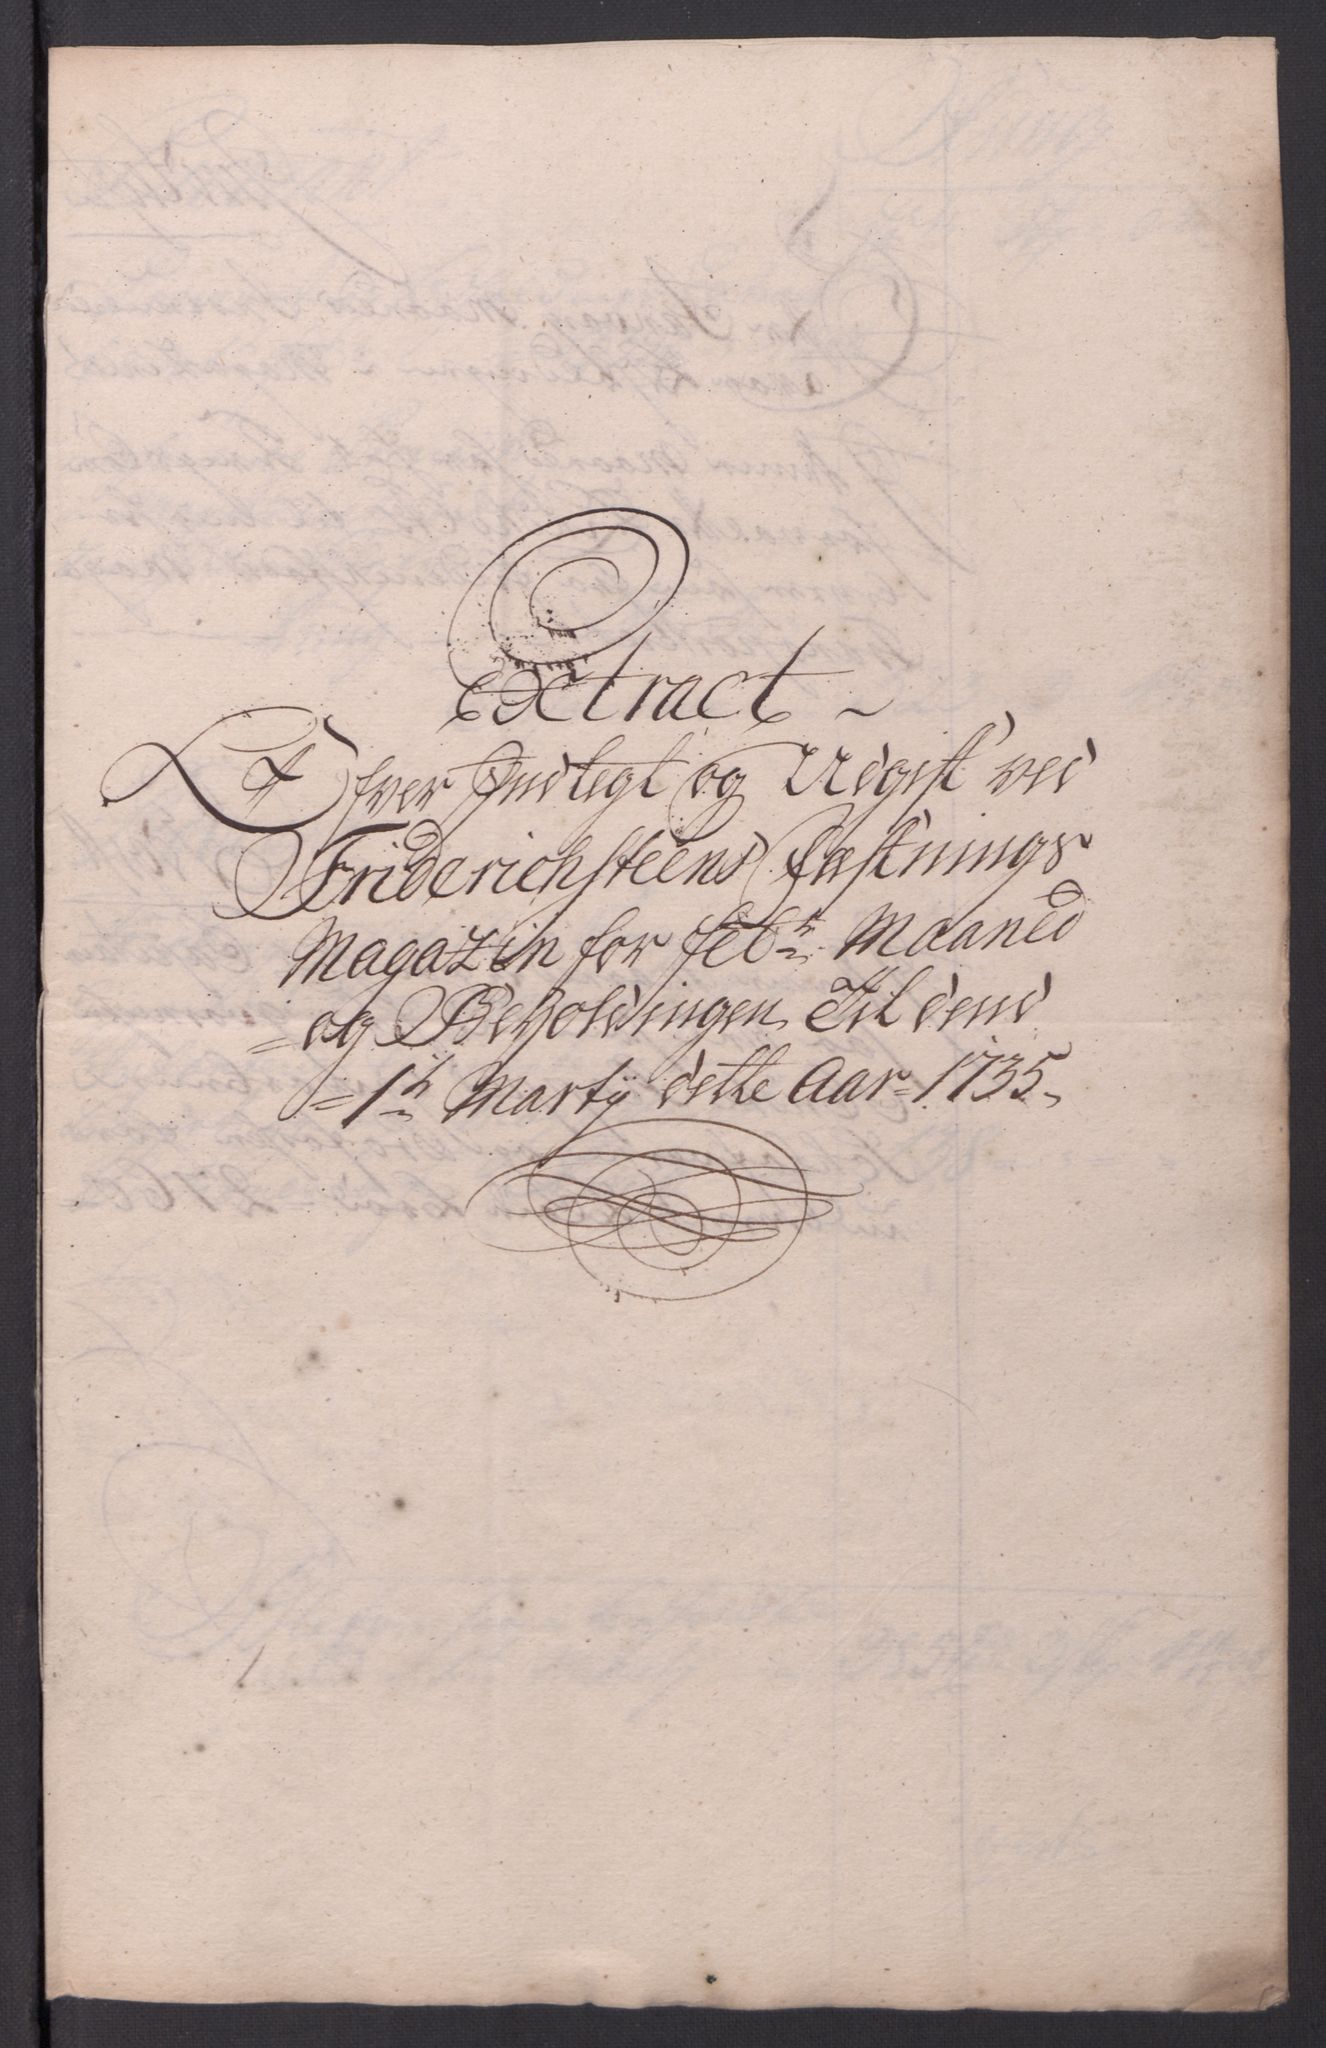 Extract
Ofver Indtegt og Udgift ved
Friderichsteens Fæstnings
Magazin for febr: Maaned
og Beholdingen Til dend
1t Martij dette Aar 1735